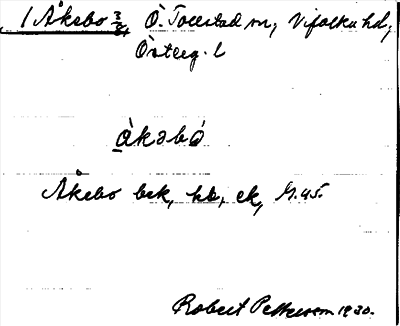 1 Åkebo 3/8, Ö. Tollstad sn, Vifolka hd,
Österg. l
àkəbó
Åkebo bek, hb, ek, G.u5.
Robert Pettersson 1930.